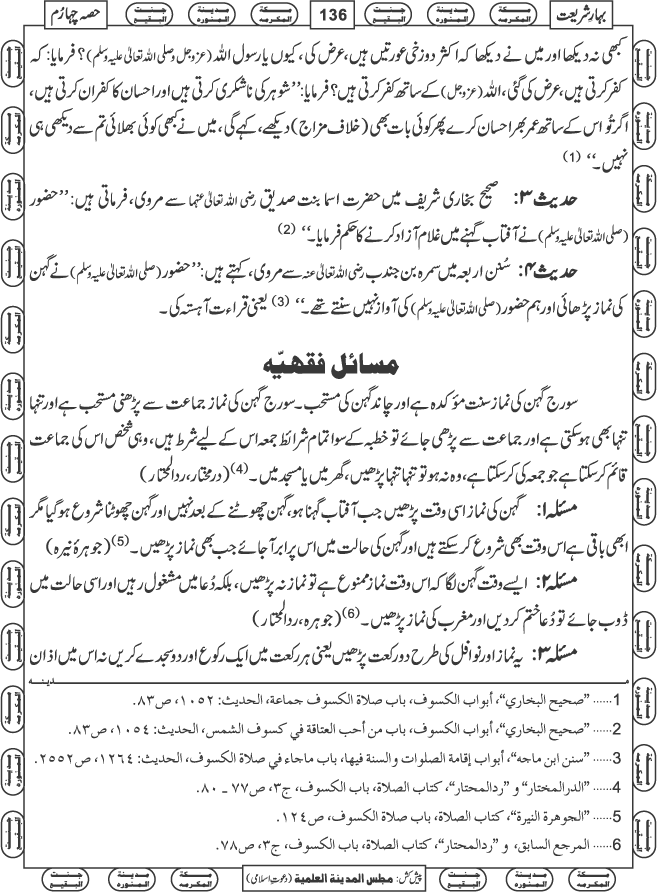 بہارِ شریعت
136
حصہ چہارم
کبھی نہ دیکھا اور میں نے دیکھا کہ اکثر دوزخی عورتیں ہیں، عرض کی، کیوں یا رسول اللہ (عزوجل وصلی اللہ تعالیٰ علیہ وسلم)؟ فرمایا: کہ
کفر کرتی ہیں، عرض کی گئی، اللہ (عزوجل) کے ساتھ کفر کرتی ہیں؟ فرمایا: ’’شوہر کی ناشکری کرتی ہیں اور احسان کا کفران کرتی ہیں،
اگر تُو اس کے ساتھ عمر بھر احسان کرے پھر کوئی بات بھی (خلاف مزاج) دیکھے، کہے گی، میں نے کبھی کوئی بھلائی تم سے دیکھی ہی
نہیں۔‘‘ (1)
حدیث ۳: صحیح بخاری شریف میں حضرت اسما بنت صدیق رضی اللہ تعالیٰ عنہا سے مروی، فرماتی ہیں: ’’حضور
(صلی اللہ تعالیٰ علیہ وسلم) نے آفتاب گہنے میں غلام آزاد کرنے کا حکم فرمایا۔‘‘ (2)
حدیث ۴: سُنن اربعہ میں سمرہ بن جندب رضی اللہ تعالیٰ عنہ سے مروی، کہتے ہیں: ’’حضور (صلی اللہ تعالیٰ علیہ وسلم) نے گہن
کی نماز پڑھائی اور ہم حضور (صلی اللہ تعالیٰ علیہ وسلم) کی آواز نہیں سنتے تھے۔‘‘ (3) یعنی قراءت آہستہ کی۔
مسائل فقہیّہ
سورج گہن کی نماز سنت مؤکدہ ہے اور چاند گہن کی مستحب۔ سورج گہن کی نماز جماعت سے پڑھنی مستحب ہے اور تنہا
تنہا بھی ہو سکتی ہے اور جماعت سے پڑھی جائے تو خطبہ کے سوا تمام شرائط جمعہ اس کے لیے شرط ہیں، وہی شخص اس کی جماعت
قائم کر سکتا ہے جو جمعہ کی کر سکتا ہے، وہ نہ ہو تو تنہا تنہا پڑھیں، گھر میں یا مسجد میں۔ (4) (درمختار، ردالمحتار)
مسئلہ ۱: گہن کی نماز اسی وقت پڑھیں جب آفتاب گہنا ہو، گہن چھوٹنے کے بعد نہیں اور گہن چھوٹنا شروع ہوگیا مگر
ابھی باقی ہے اس وقت بھی شروع کر سکتے ہیں اور گہن کی حالت میں اس پر ابر آجائے جب بھی نماز پڑھیں۔ (5) (جوہرۂ نیرہ)
مسئلہ ۲: ایسے وقت گہن لگا کہ اس وقت نماز ممنوع ہے تو نماز نہ پڑھیں، بلکہ دُعا میں مشغول رہیں اور اسی حالت میں
ڈوب جائے تو دُعا ختم کر دیں اور مغرب کی نماز پڑھیں۔ (6) (جوہرہ، ردالمحتار)
مسئلہ ۳: یہ نماز اور نوافل کی طرح دو رکعت پڑھیں یعنی ہر رکعت میں ایک رکوع اور دو سجدے کریں نہ اس میں اذان
مدینہ
1...... ”صحیح البخاري“، أبواب الکسوف، باب صلاۃ الکسوف جماعة، الحدیث: ۱۰۵۲، ص۸۳.
2...... ”صحیح البخاري“، أبواب الکسوف، باب من أحب العتاقة في کسوف الشمس، الحدیث: ۱۰۵۴، ص۸۳.
3...... ”سنن ابن ماجه“، أبواب إقامة الصلوات والسنة فیها، باب ماجاء في صلاۃ الکسوف، الحدیث: ۱۲۶۴، ص۲۵۵۲.
4...... ”الدرالمختار“ و ”ردالمحتار“، کتاب الصلاۃ، باب الکسوف، ج۳، ص۷۷ ـ ۸۰.
5...... ”الجوهرة النیرة“، کتاب الصلاة، باب صلاة الکسوف، ص۱۲۴.
6...... المرجع السابق، و ”ردالمحتار“، کتاب الصلاة، باب الکسوف، ج۳، ص۷۸.
پیش کش: مجلس المدینة العلمیة (دعوتِ اسلامی)
جنت البقیع
مدینة المنورہ
مکة المکرمه